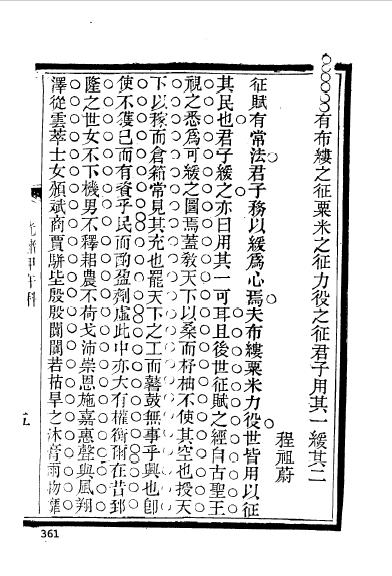 有布縷之征粟米之征力役之征君子用其一緩其二
程祖蔚
征賦有常法君子務以緩爲心焉夫布縷粟米力役世皆用以征
其民也君子緩之亦曰用其一可耳且後世征賦之經自古聖王
視之悉爲可緩之圖焉蓋敎天下以桑而杼柚不使其空也授天
下以稼而倉箱常見其充也罷天下之工而鼛鼓無事乎興也卽
使不獲已而有資乎民而酌盈劑虛此中亦大有權衡爾在昔郅
隆之世女不下機男不釋耜農不荷戈沛崇恩施嘉惠聲與風翔
澤從雲萃士女頒斌商賈駢坒殷殷闐闐若枯旱之沐膏雨物
光緒甲午科
361